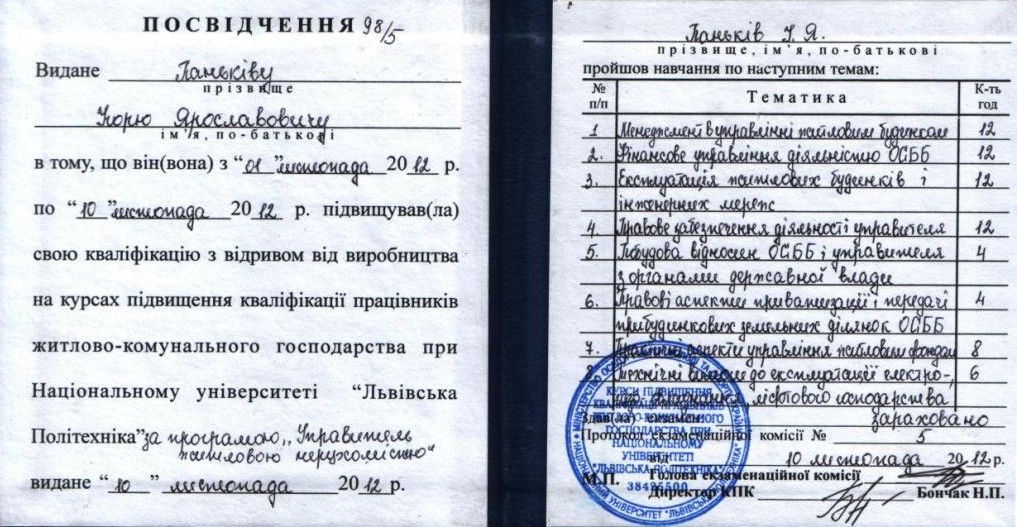 ПОСВІДЧЕННЯ 98/5
Видане Паньківу
прізвище
Юрію Ярославовичу
ім'я, по-батькові
в тому, що він(вона) з “01” листопада 2012 р.
по “10” листопада 2012 р. підвищував(ла)
свою кваліфікацію з відривом від виробництва
на курсах підвищення кваліфікації працівників
житлово-комунального господарства при
Національному університеті “Львівська
Політехніка” за програмою „Управитель
житловою нерухомістю“
видане “10” листопада 2012 р.
Паньків Ю. Я.
прізвище, ім'я, по-батькові
пройшов навчання по наступним темам:
№ п/п Тематика К-ть год
1 Менеджмент в управлінні житловим будинком 12
2. Фінансове управління діяльністю ОСББ 12
3. Експлуатація житлових будинків і 12
інженерних мереж
4. Правове забезпечення діяльності управителя 12
5. Побудова відносин ОСББ і управителя 4
з органами державної влади
6. Правові аспекти приватизації і передачі 4
прибудинкових земельних ділянок ОСББ
7. Практичні аспекти управління житловим фондом 8
8 Технічні вимоги до експлуатації електро-, 6
ліфтового господарства
Здав(ла) екзамен: зараховано
Протокол екзаменаційної комісії № 5
від 10 листопада 2012 р.
М.П. Голова екзаменаційної комісії
Директор КПК Бончак Н.П.
КУРСИ ПІДВИЩЕННЯ
КВАЛІФІКАЦІЇ ПРАЦІВНИКІВ
ЖИТЛОВО-КОМУНАЛЬНОГО
ГОСПОДАРСТВА ПРИ
НАЦІОНАЛЬНОМУ
УНІВЕРСИТЕТІ
"ЛЬВІВСЬКА ПОЛІТЕХНІКА"